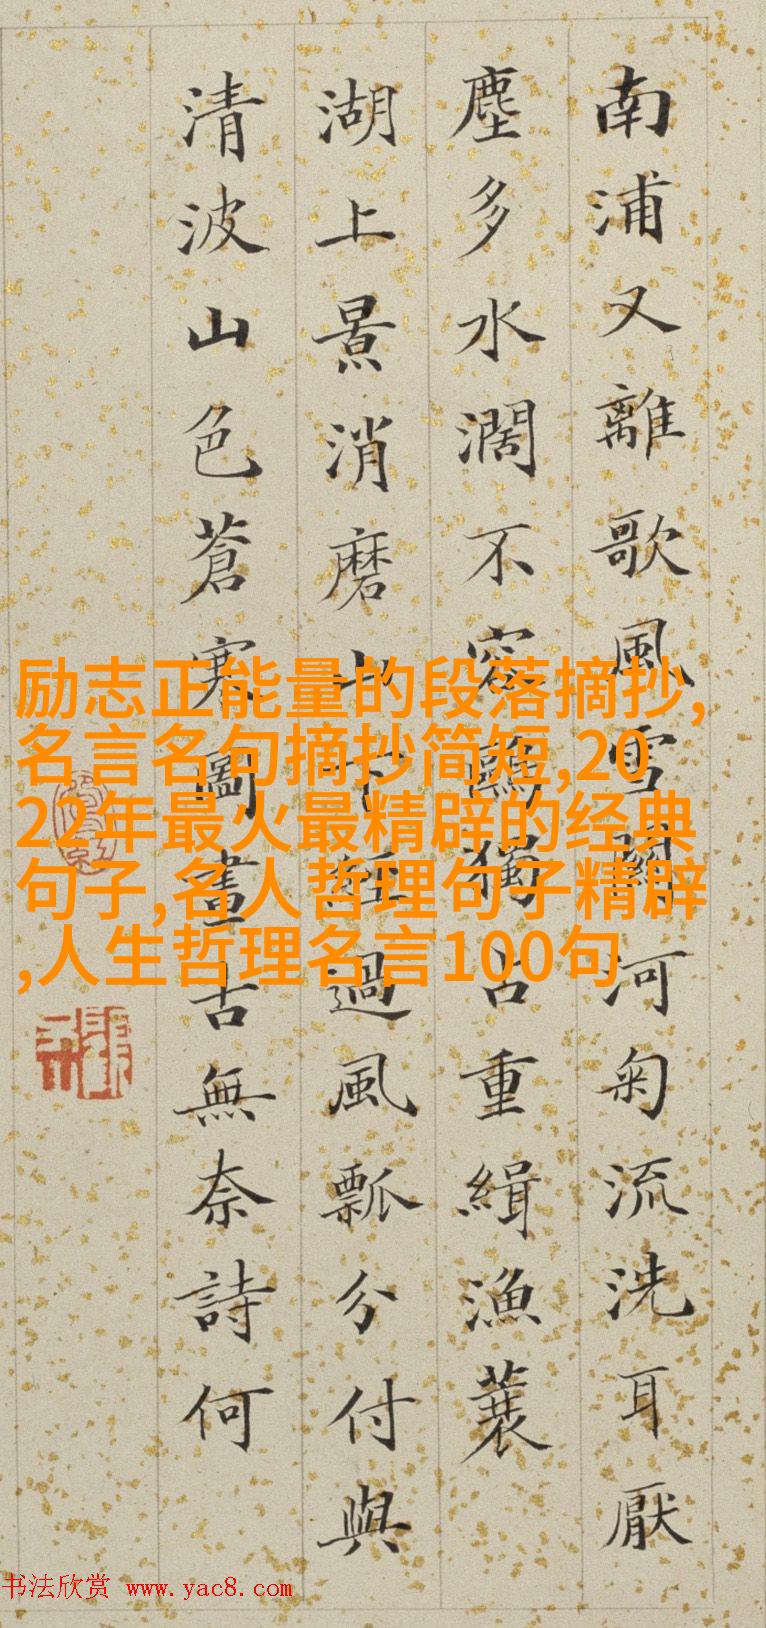 南浦又離歌風雪關河匊流洗耳厭
塵多水濶不容鷗獨占重緝漁蓑
湖上景消磨上下經過風瓢分付與
清波山色蒼寒圖畫古無奈詩何
励志正能量的段落摘抄,
名言名句摘抄简短,20
22年最火最精辟的经典
句子,名人哲理句子精辟
,人生哲理名言100句
书法欣赏 www.yac8.com